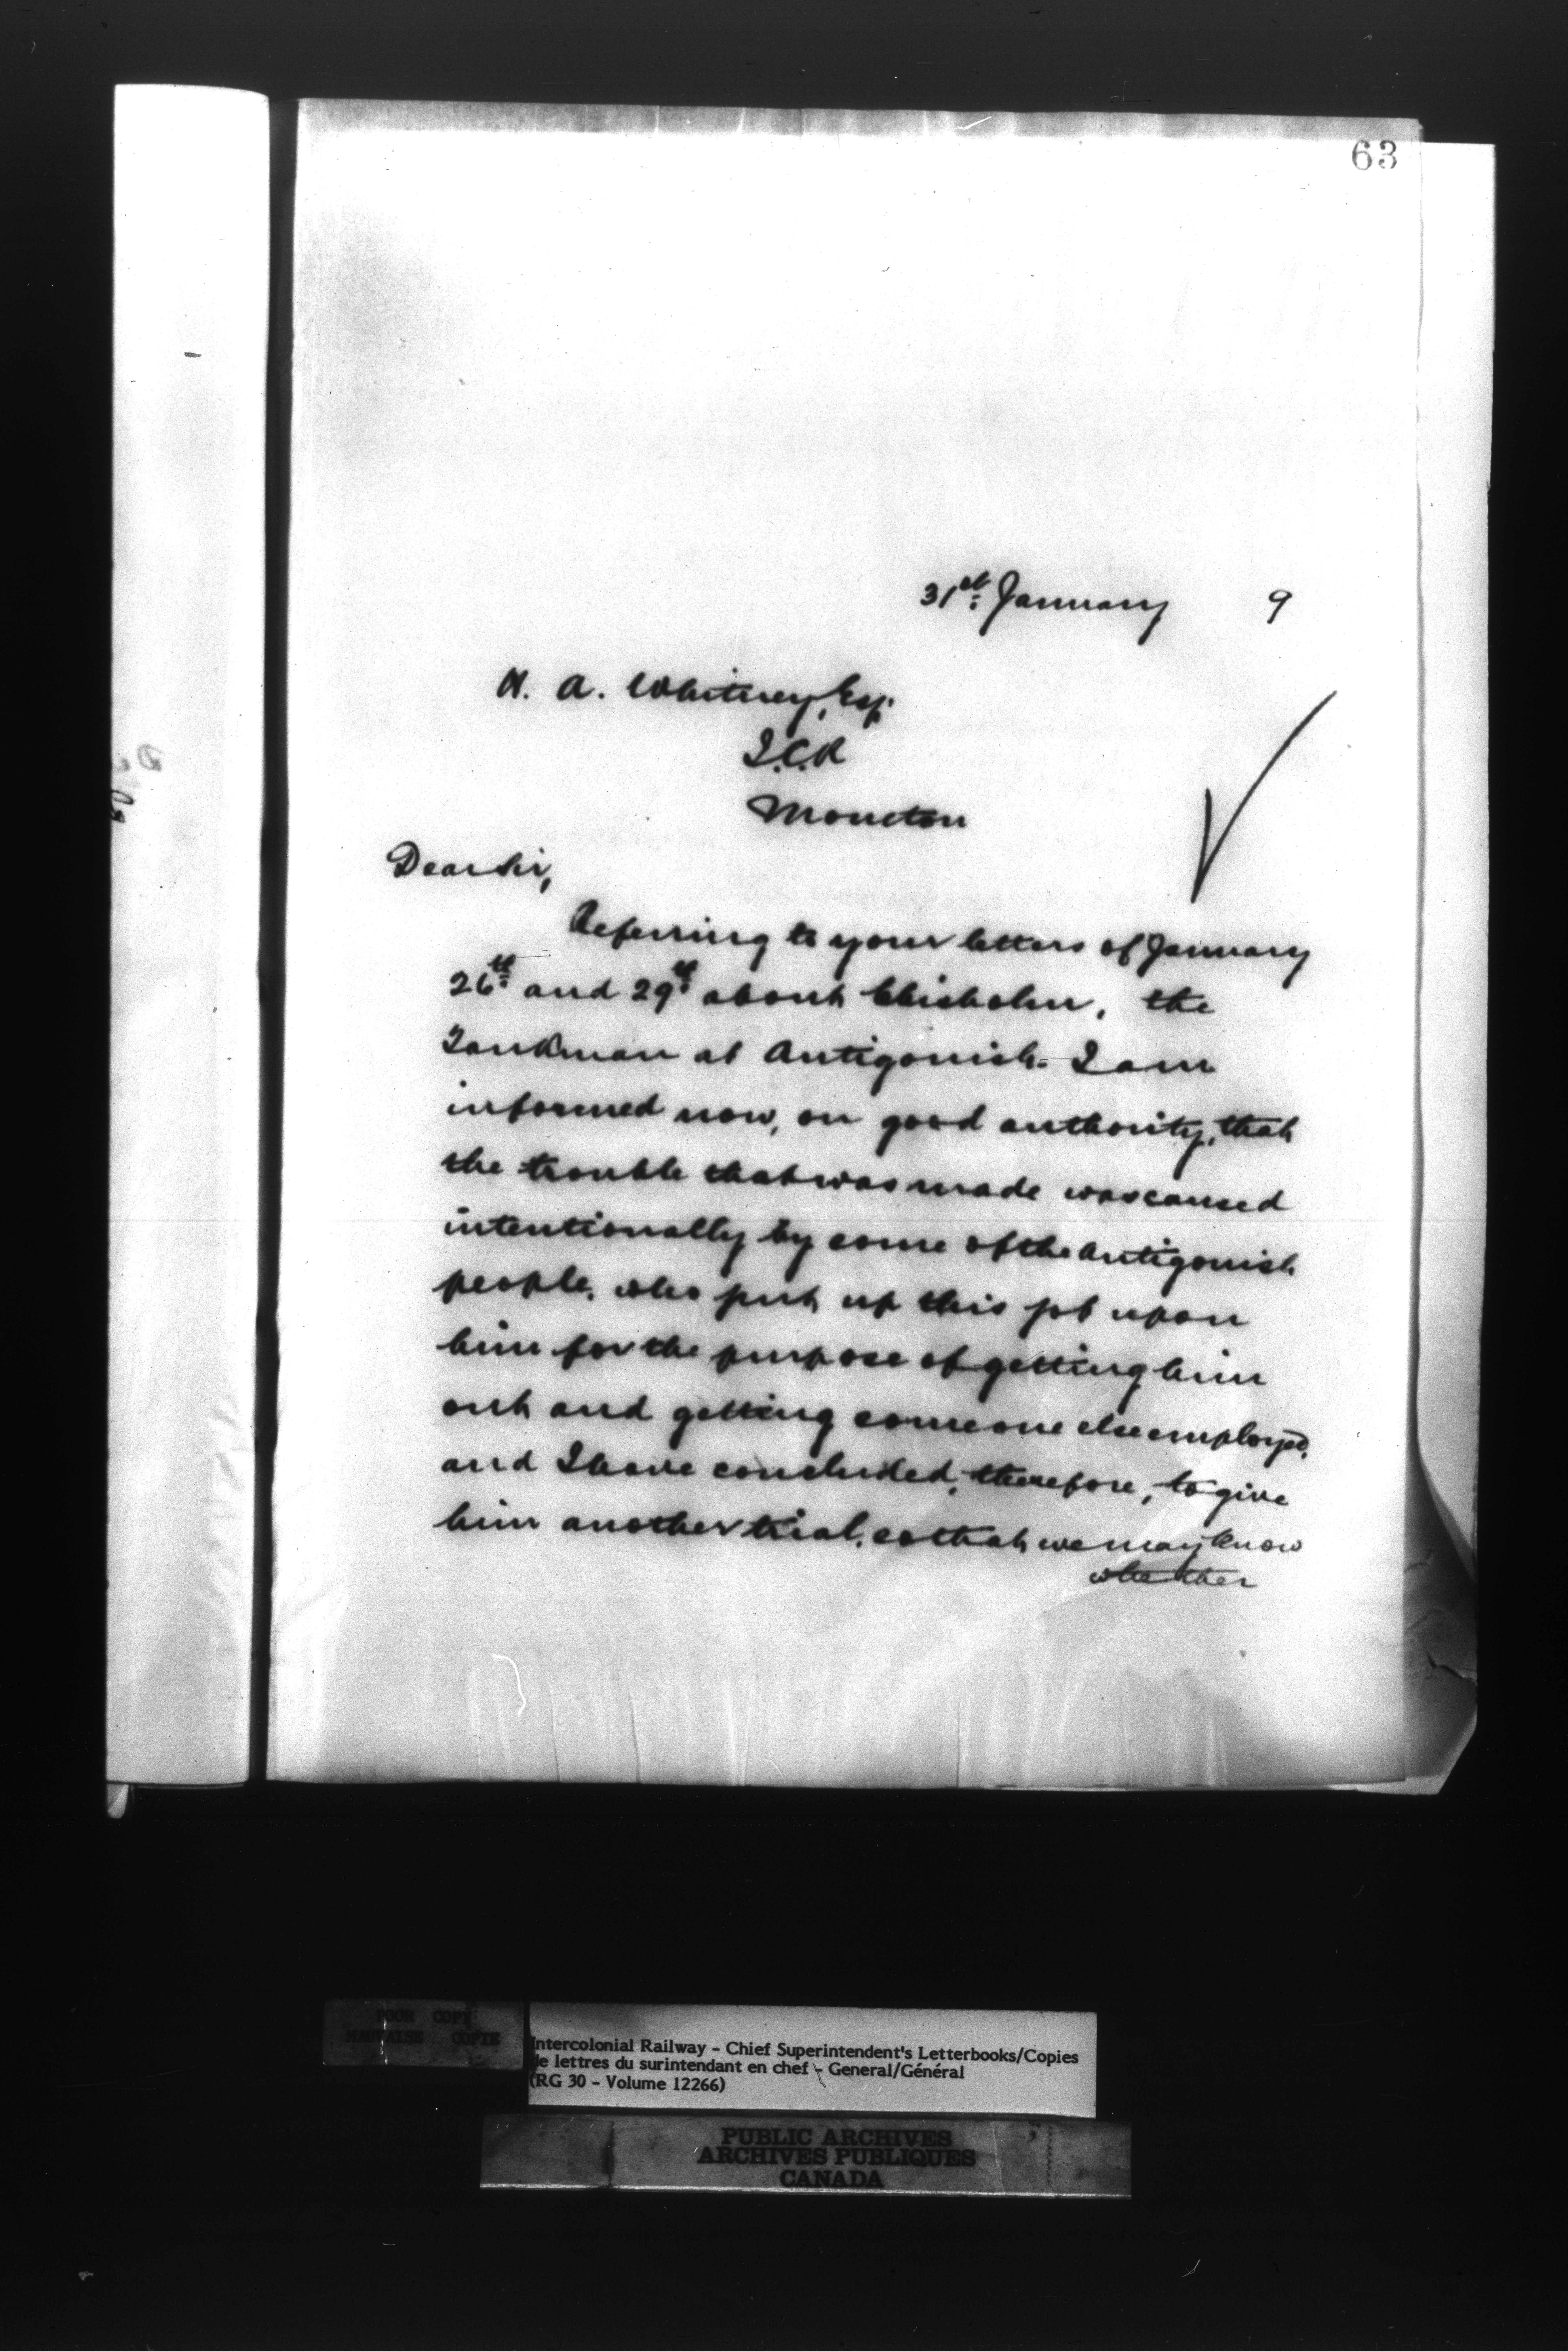 63
31st January 9
H. A. Whitney, Esq.
I.C.R
Moncton
Dear Sir,
Referring to your letters of January
26th and 29th about Chisholm, the
Tankman at Antigonish. I am
informed now, on good authority, that
the trouble that was made was caused
intentionally by some of the Antigonish
people, who put up this job upon
him for the purpose of getting him
out and getting someone else employed,
and I have concluded, therefore, to give
him another trial, so that we may know
whether
POOR COPY
MAUVAISE COPIE
Intercolonial Railway - Chief Superintendent's Letterbooks/Copies
de lettres du surintendant en chef - General/Général
(RG 30 - Volume 12266)
PUBLIC ARCHIVES
ARCHIVES PUBLIQUES
CANADA